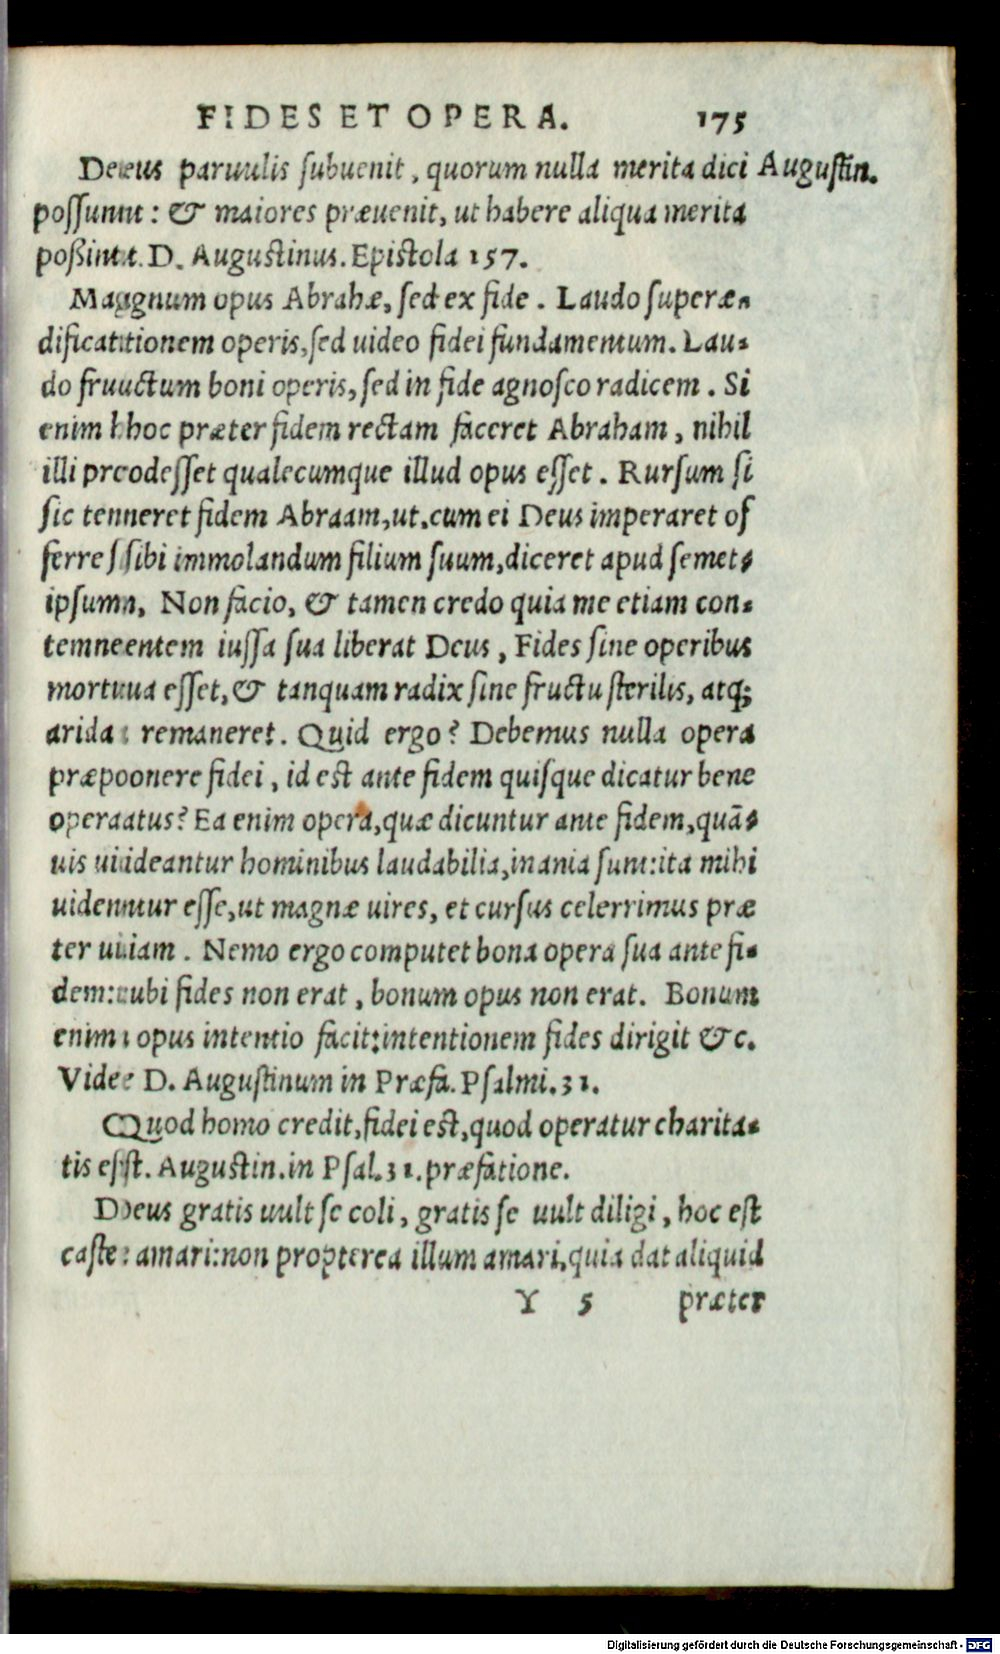 FIDES ET OPERA. 175
Deus paruulis subuenit, quorum nulla merita dici Augustin.
possunt: & maiores præuenit, ut habere aliqua merita
poßint. D. Augustinus. Epistola 157.
Magnum opus Abrahæ, sed ex fide. Laudo superæ-
dificationem operis, sed uideo fidei fundamentum. Lau-
do fructum boni operis, sed in fide agnosco radicem. Si
enim hoc præter fidem rectam faceret Abraham, nihil
illi prodesset qualecumque illud opus esset. Rursum si
sic teneret fidem Abraam, ut, cum ei Deus imperaret of
ferre sibi immolandum filium suum, diceret apud semet-
ipsum, Non facio, & tamen credo quia me etiam con-
temnentem iussa sua liberat Deus, Fides sine operibus
mortua esset, & tanquam radix sine fructu sterilis, atq;
arida remaneret. Quid ergo? Debemus nulla opera
præponere fidei, id est ante fidem quisque dicatur bene
operatus? Ea enim opera, quæ dicuntur ante fidem, quã-
uis uideantur hominibus laudabilia, inania sunt: ita mihi
uidentur esse, ut magnæ uires, et cursus celerrimus præ
ter uiam. Nemo ergo computet bona opera sua ante fi-
dem: ubi fides non erat, bonum opus non erat. Bonum
enim opus intentio facit: intentionem fides dirigit &c.
Vide D. Augustinum in Præfa. Psalmi. 31.
Quod homo credit, fidei est, quod operatur charita-
tis est. Augustin. in Psal. 31. præfatione.
Deus gratis uult se coli, gratis se uult diligi, hoc est
caste amari: non propterea illum amari, quia dat aliquid
Y 5 præter
Digitalisierung gefördert durch die Deutsche Forschungsgemeinschaft - DFG